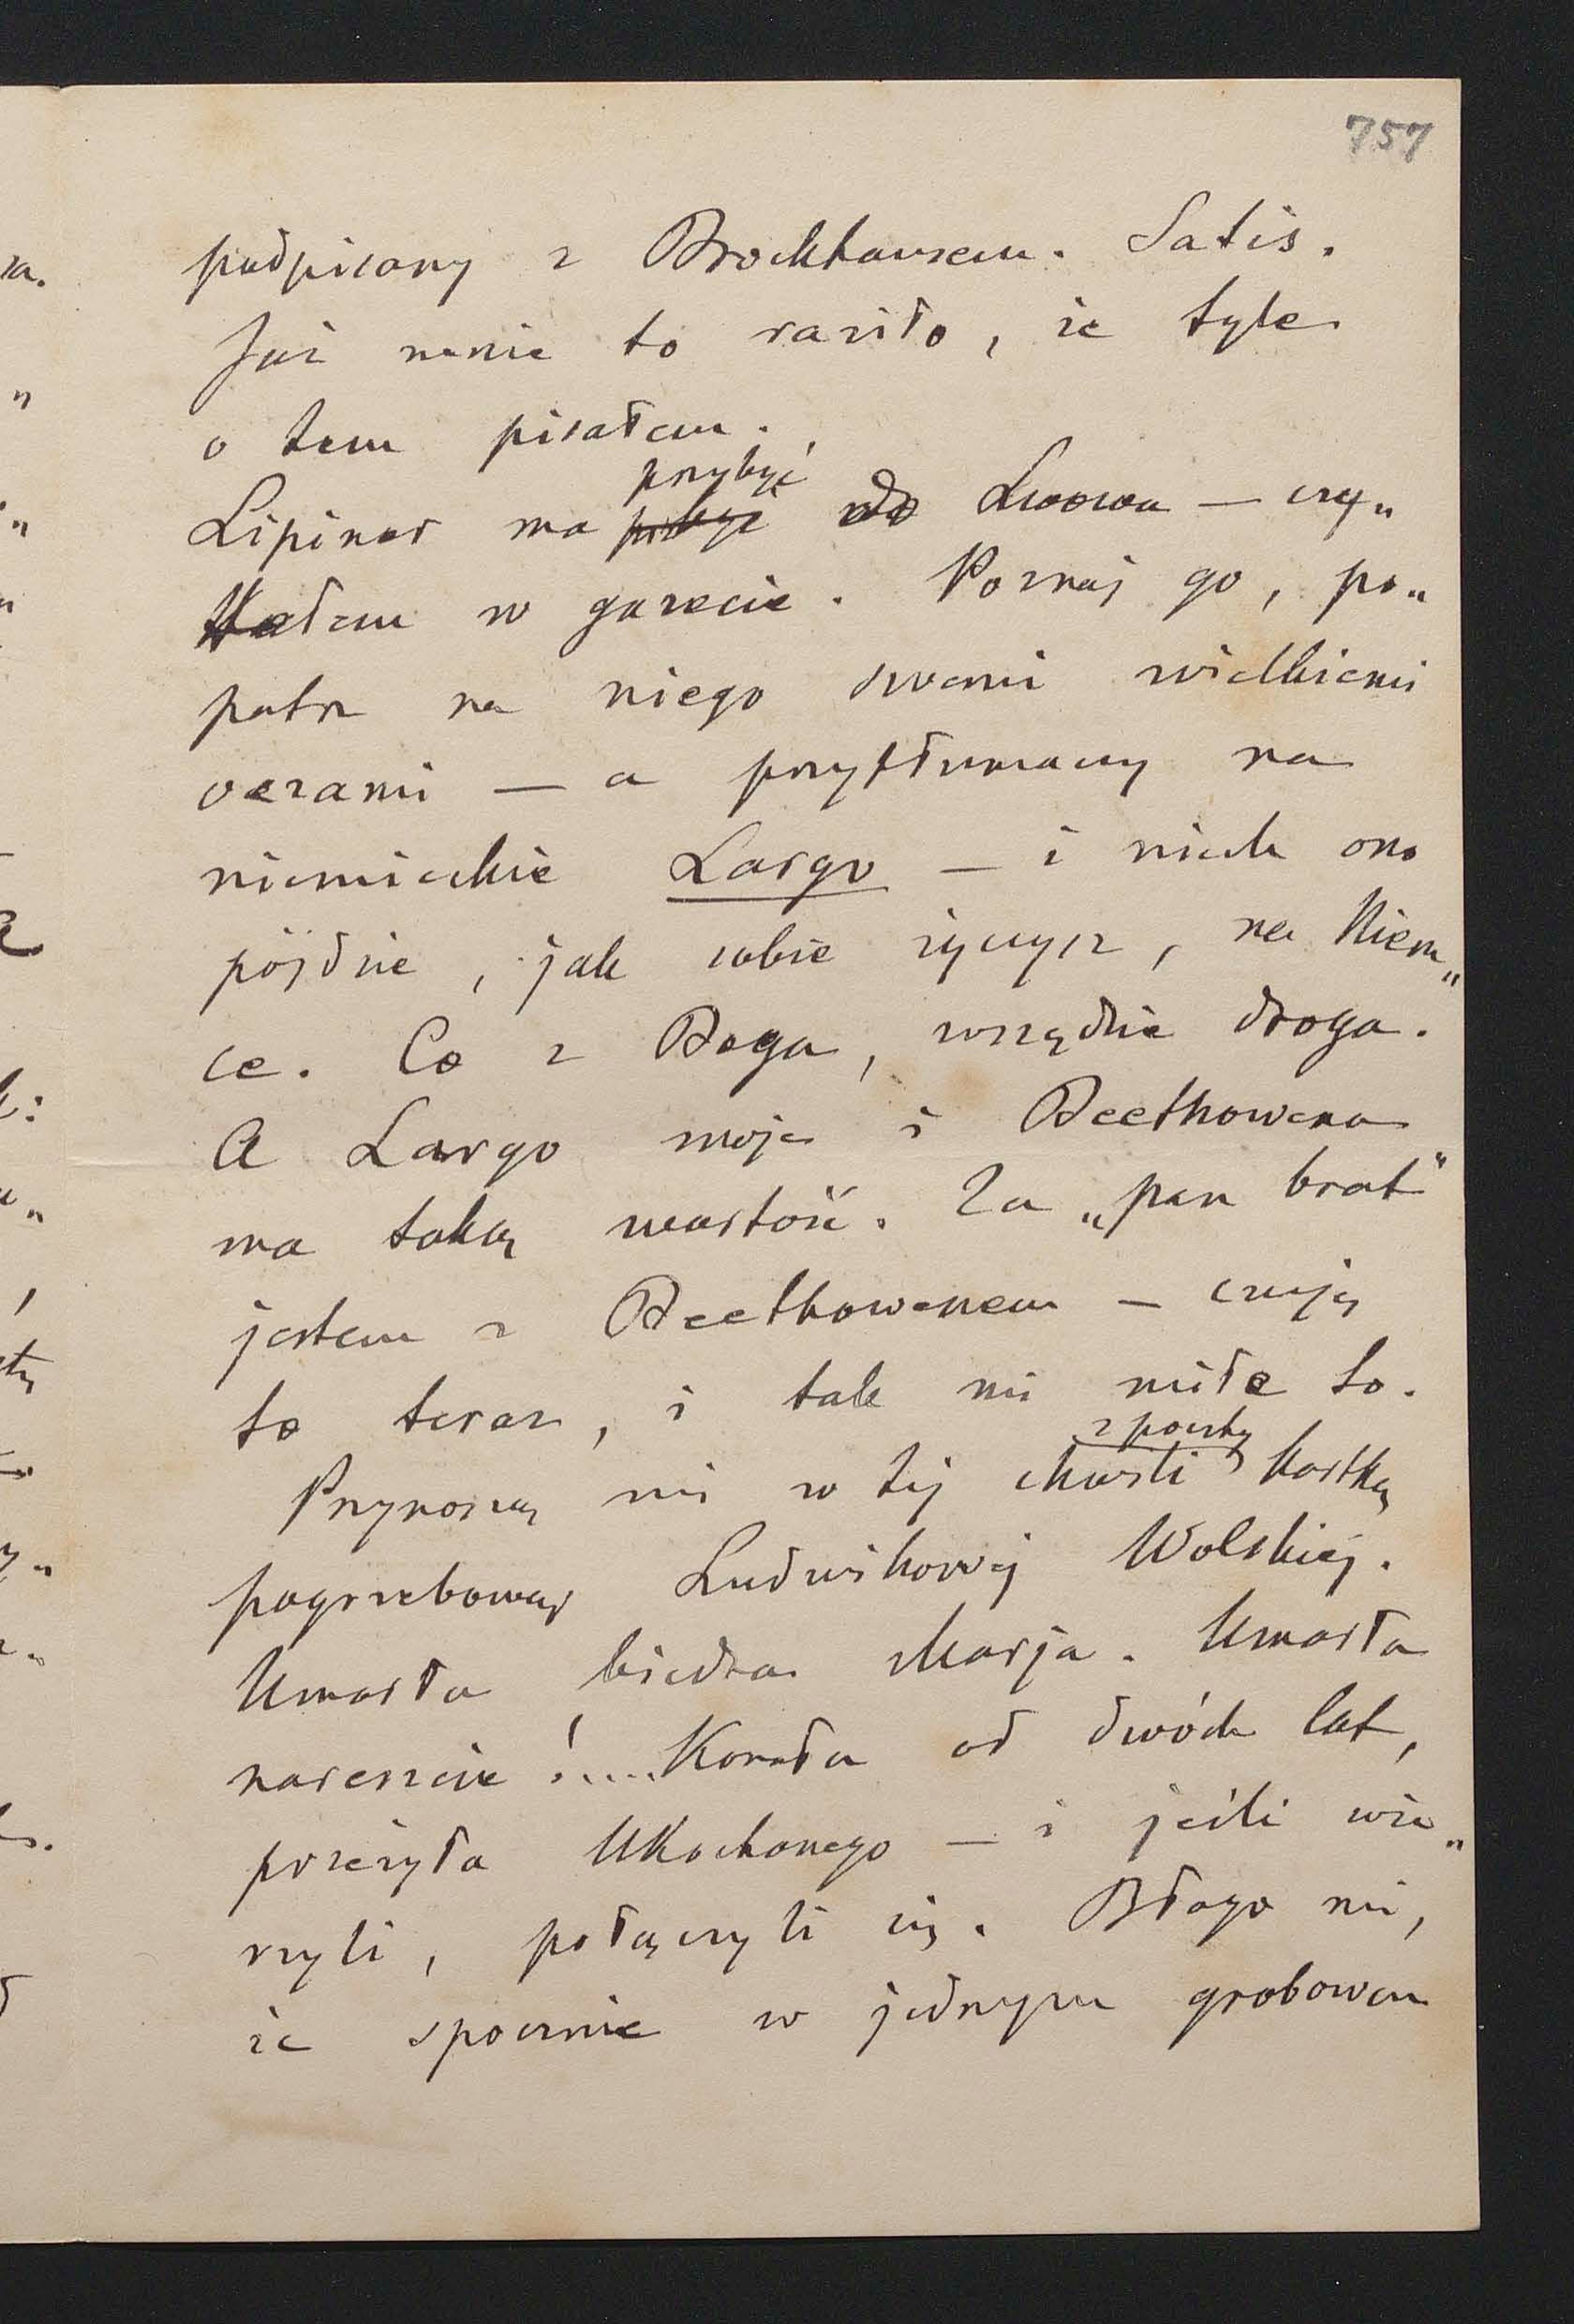 757
podpisany z Brockhausem. Satis.
Już mnie to raziło, że tyle
o tem pisałem.
przybyć
Lipiner ma przybyć do Lwowa — czy„
tałem w gazecie. Poznaj go, po„
patrz na niego swemi wielkiemi
oczami — a przytłumaczy na
niemieckie Largo — i niech ono
pójdzie, jak sobie życzysz, na Niem„
ce. Co z Boga, wszędzie droga.
A Largo moje i Beethowena
ma taką wartość. Za „pan brat"
jestem z Beethowenem — czuję
to teraz, i tak mi miło to.
z poczty
Przynoszą mi w tej chwili kartkę
pogrzebową Ludwikowej Wolskiej.
Umarła biedna Marja. Umarła
nareszcie!.... Konała od dwóch lat,
przeżyła Ukochanego — i jeśli wie„
rzyli, połączyli się. Błogo mi,
że spocznie w jednym grobowcu